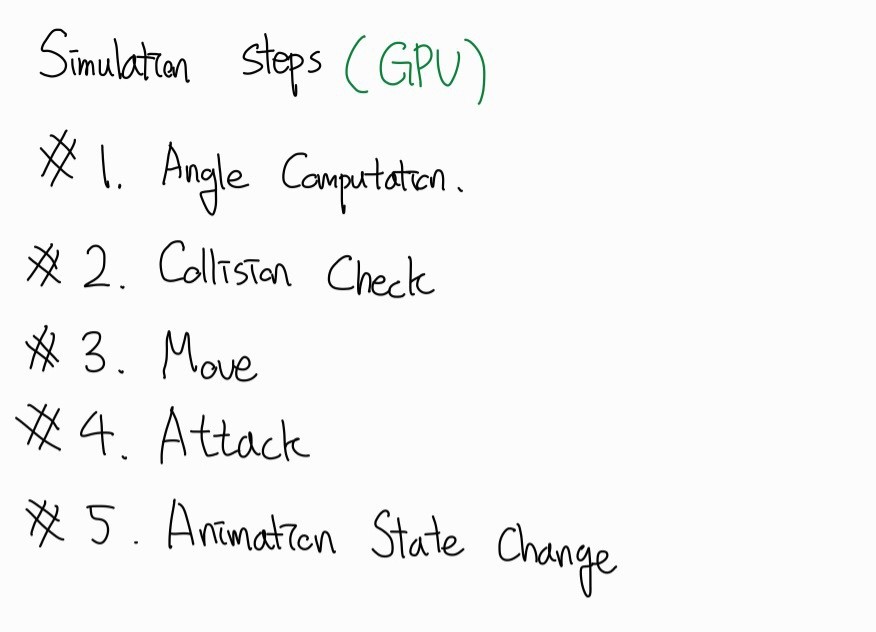 Simulation steps (GPU)
# 1. Angle Computation.
# 2. Collision Check
# 3. Move
# 4. Attack
# 5. Animation State Change